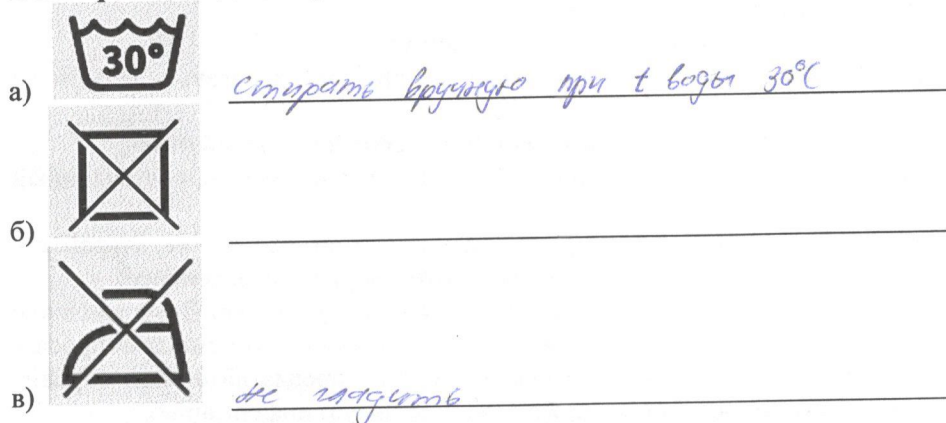 30°
а) стирать вручную при t воды 30°C
б)
в) не гладить